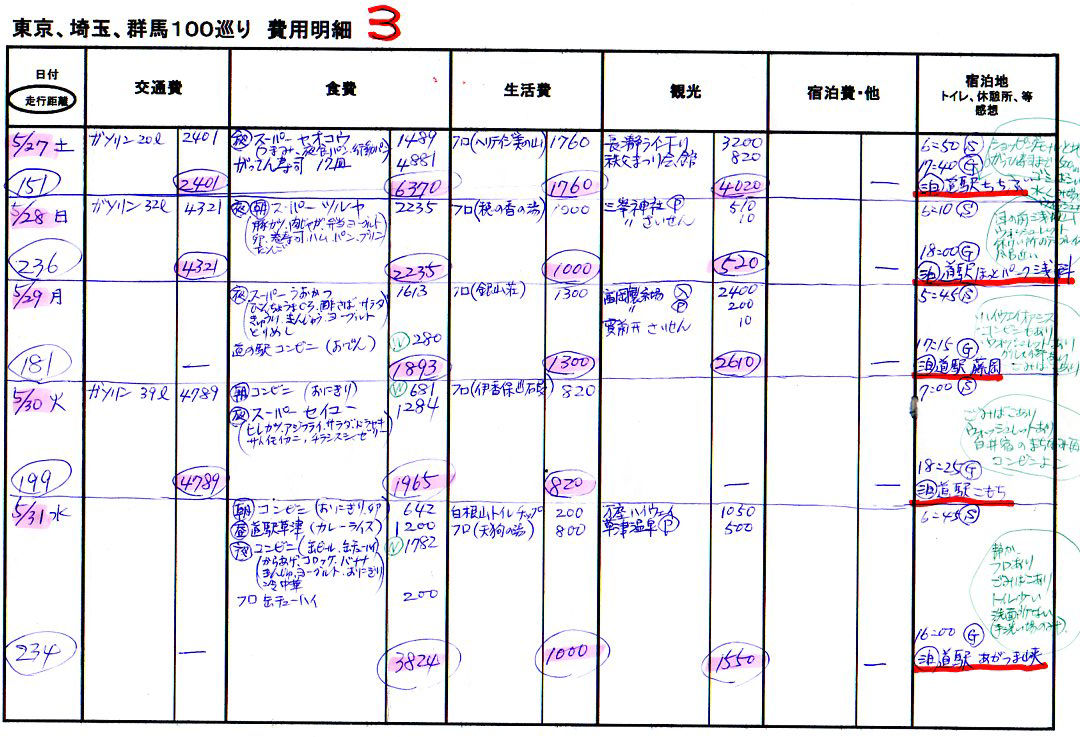 東京、埼玉、群馬100巡り 費用明細 3
日付
走行距離
交通費
食費
生活費
観光
宿泊費・他
宿泊地
トイレ、休憩所、等
感想
5/27 土
ガソリン 20ℓ 2401
夜 スーパー ヤオコウ 1489
がってん寿司 12皿 4881
フロ(ヘリテイジ美の山) 1760
長瀞ライン下り 3200
秩父まつり会館 820
6=50 S
17=40 G
151
2401
6370
1760
4020
—
泊 道駅ちちぶ
5/28 日
ガソリン 32ℓ 4321
夜 朝 スーパー ツルヤ 2235
豚カツ、肉じゃが、弁当、ヨーグルト
卵、巻寿司、ハム、パン、プリン
だんご
フロ(税の香の湯) 1000
三峯神社 P 510
〃 さいせん 10
6=10 S
18=00 G
236
4321
2235
1000
520
—
泊 道駅 ほっとパーク浅科
5/29 月
夜 スーパー うおかつ 1613
きゅうり、まんじゅう、ヨーグルト
とりめし
道の駅 コンビニ (おでん) W 280
フロ(銀山荘) 1300
富岡製糸場 2400
〃 P 200
貫前神 さいせん 10
5=45 S
コンビニもあり
17=15 G
181
—
1893
1300
2610
—
泊 道駅 藤岡
5/30 火
ガソリン 39ℓ 4789
朝 コンビニ (おにぎり) W 681
夜 スーパー セイユー 1284
ヒレカツ、アジフライ、サラダ、ドラヤキ
サトイモイカニ、チラシスシ、ゼリー
フロ(伊香保 石段) 820
7=00 S
ごみばこあり
ウォッシュレットあり
コンビニよこ
18=25 G
199
4789
1965
820
—
—
泊 道駅 こもち
5/31 水
朝 コンビニ (おにぎり、卵) 642
昼 道駅草津 (カレーライス) 1200
夜 コンビニ (缶ビール、缶チューハイ W 1782
からあげ、コロッケ、バナナ
まんじゅう、ヨーグルト、おにぎり
冷中華
フロ 缶チューハイ 200
白根山トイレチップ 200
フロ(天狗の湯) 800
万座ハイウェイ 1050
草津温泉 P 500
6=45 S
静か
フロあり
ごみばこあり
トイレ少い
16=00 G
234
—
3824
1000
1550
—
泊 道駅 あがつま峡